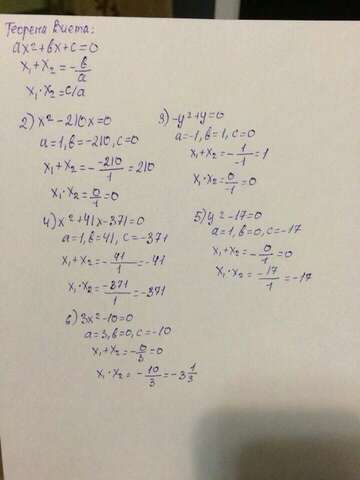 Теорема Виета:
ax²+bx+c=0
x₁+x₂=-b/a
x₁·x₂=c/a
2) x²-210x=0
a=1, b=-210, c=0
x₁+x₂=-\frac{-210}{1}=210
x₁·x₂=\frac{0}{1}=0
3) -y²+y=0
a=-1, b=1, c=0
x₁+x₂=-\frac{1}{-1}=1
x₁·x₂=\frac{0}{-1}=0
4) x²+41x-371=0
a=1, b=41, c=-371
x₁+x₂=-\frac{41}{1}=-41
x₁·x₂=\frac{-371}{1}=-371
5) y²-17=0
a=1, b=0, c=-17
x₁+x₂=-\frac{0}{1}=0
x₁·x₂=\frac{-17}{1}=-17
6) 3x²-10=0
a=3, b=0, c=-10
x₁+x₂=-\frac{0}{3}=0
x₁·x₂=-\frac{10}{3}=-3\frac{1}{3}